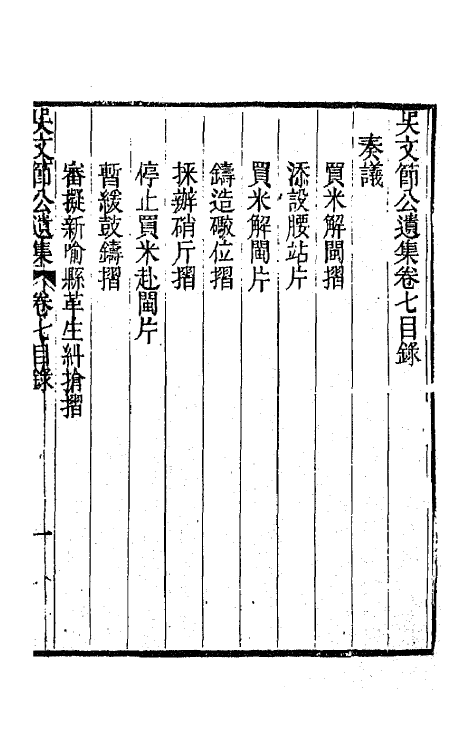 吳文節公遺集卷七目錄
奏議
買米解閩摺
添設腰站片
買米解閩片
鑄造礮位摺
採辦硝斤摺
停止買米赴閩片
暫緩鼓鑄摺
審擬新喻縣革生糾搶摺
吳文節公遺集 卷七目錄 一